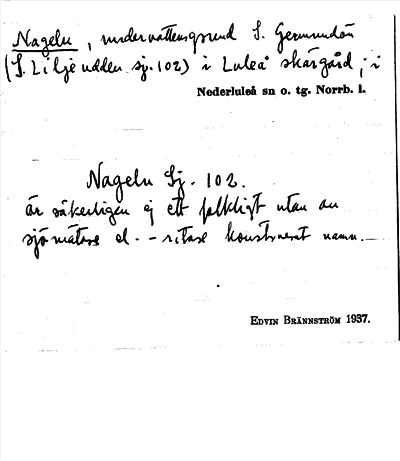 Nageln, undervattensgrund S. Germundön
(S. Liljeudden sj. 102) i Luleå skärgård, i
Nederluleå sn o. tg. Norrb. l.
Nageln Sj. 102.
är säkerligen ej ett folkligt utan av
sjömätare el. -ritare konstruerat namn.
EDVIN BRÄNNSTRÖM 1937.